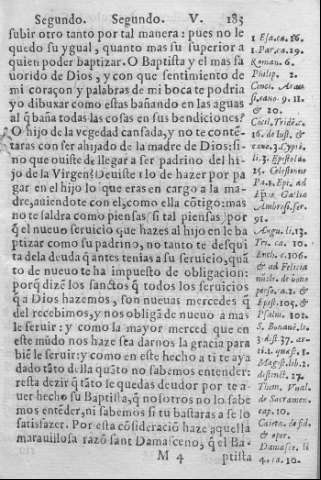 Segundo. Segundo. V. 183
subir otro tanto por tal manera: pues no le
quedo su ygual, quanto mas su superior a
quien poder baptizar. O Baptista y el mas fa
uorido de Dios, y con que sentimiento de
mi coraçon y palabras de mi boca te podria
yo dibuxar como estas bañando en las aguas
al q̃ baña todas las cosas en sus bendiciones?
O hijo de la vegedad cansada, y no te contẽ-
taras con ser ahijado de la madre de Dios: si-
no que ouiste de llegar a ser padrino del hi-
jo de la Virgen? Deuiste lo de hazer por pa
gar en el hijo lo que eras en cargo a la ma-
dre, auiendote con el, como ella cõtigo: mas
no te saldra como piensas si tal piensas, por
q̃ el nueuo seruicio que hazes al hijo en le ba
ptizar como su padrino, no tanto te desqui
ta dela deuda q̃ antes tenias a su seruicio, quã
to de nueuo te ha impuesto de obligacion:
porq̃ dizẽ los sanctos q̃ todos los seruicios
q̃ a Dios hazemos, son nueuas mercedes q̃
del recebimos, y nos obligã de nueuo a mas
le seruir: y como la mayor merced que en
este mũdo nos haze sea darnos la gracia para
biẽ le seruir: y como en este hecho a ti te aya
dado tãto della quãto no sabemos entender:
resta dezir q̃ tãto le quedas deudor por te a-
uer hecho su Baptista, q̃ nosotros no lo sabe
mos entẽder, ni sabemos si tu bastaras a se lo
satisfazer. Por esta cõsideraciõ haze aquella
marauillosa razõ sant Damasceno, q̃ el Ba-
M 4 ptista
1 Esa. ca. 26.
1. Par. ca. 29.
Roman. 6.
Philip. 2.
Conci. Arau
si. cano. 9. 11.
& 20.
Cõcil. Tridẽ. c.
16. de iust. &
cano. 3. Cypri.
li. 3. Epistola.
25. Celestinus
Pa. 1. Epi. ad
Ep̃os Gallie
Ambros. ser.
91.
Augu. li. 13.
Tri. ca. 10.
Ench. c. 106.
& ad Felicia
de bono
perse. c. 2. &
Epist. 105. &
Psalm. 102.
S. Bonauẽ. li.
3. dist. 37. ar-
ti. 1. quæst. 1.
Mag. li. 2.
distinct. 27.
Thom. Vual.
de Sacramen.
cap. 10.
& oper.
Damasce. li
4. ca. 10.